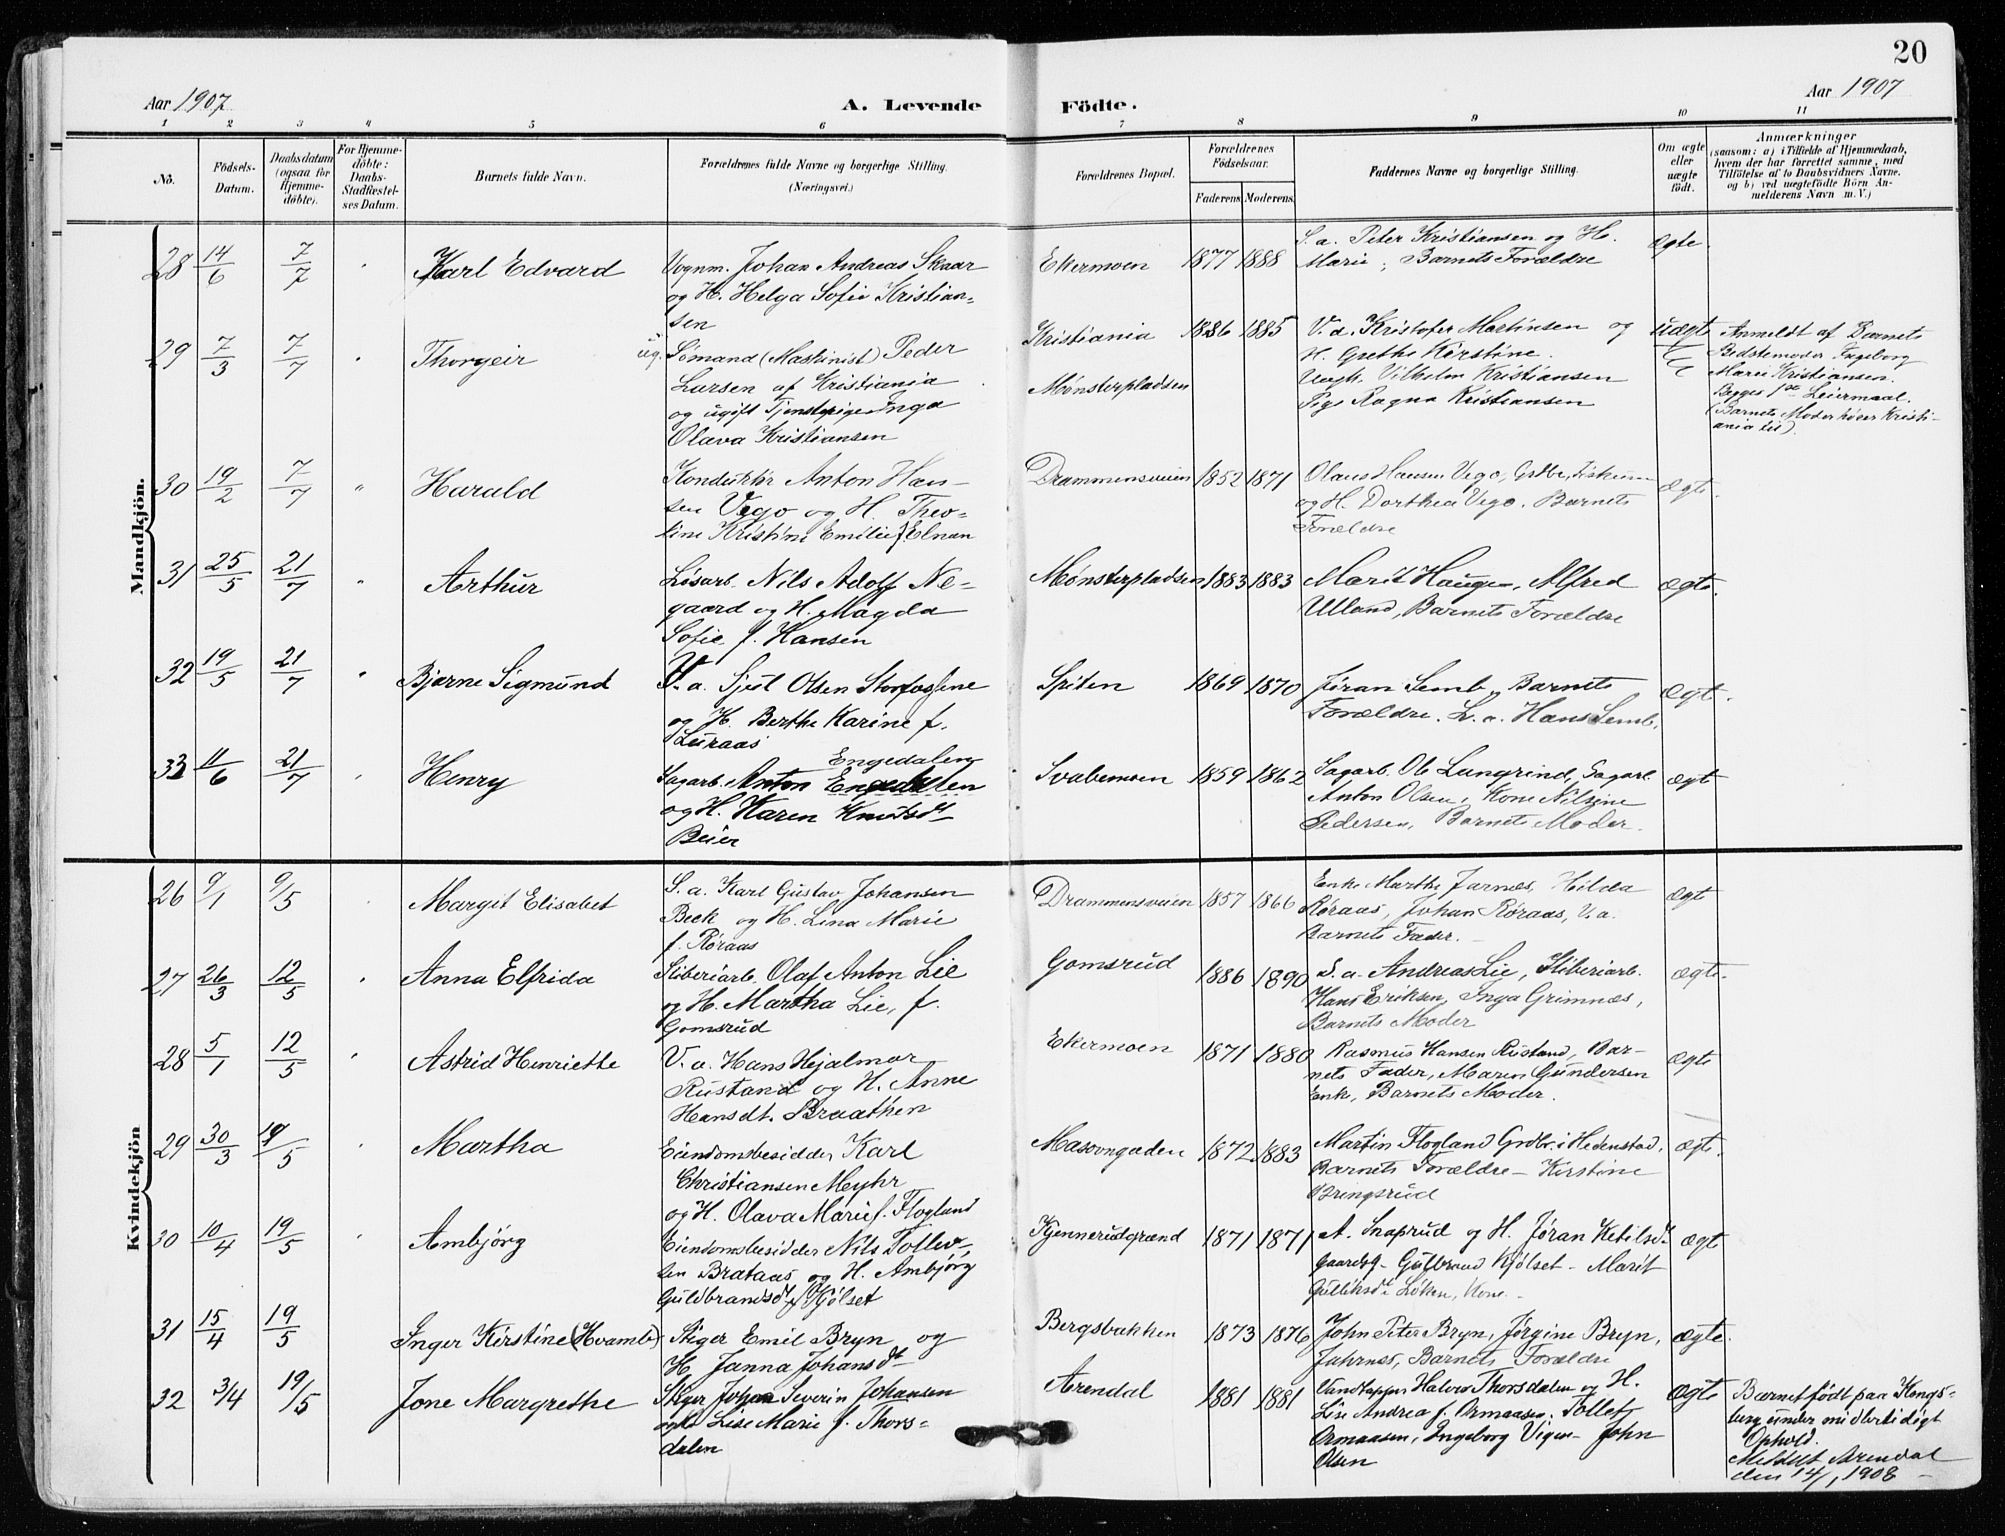 20
Aar 1907
A. Levende
Födte.
Aar 1907
1 2 3 4 5 6 7 8 9 10 11
No.
Födsels-
Datum.
Daabsdatum
(ogsaa for
Hjemme-
döbte).
For Hjemme-
döbte:
Daabs-
Stadfæstel-
ses Datum.
Barnets fulde Navn.
Forældrenes fulde Navne og borgerlige Stilling.
(Næringsvei.)
Forældrenes Bopæl.
Forældrenes
Födselsaar.
Faderens Moderens.
Faddernes Navne og borgerlige Stilling.
Om ægte
eller
uægte
født.
Anmærkninger
(saasom: a) i Tilfælde af Hjemmedaab,
hvem der har forrettet samme, med
Tilföielse af to Daabsvidners Navne,
og b) ved uægtefödte Börn An-
melderens Navn m. V.)
Mandkjön.
28 14/6 7/7 Karl Edvard
Vognm. Johan Andreas Skaar
og H. Helga Sofie Kristian-
sen
Ekermoen 1877 1888
S. a. Peter Kristiansen og H.
Marie, Barnets Forældre
ægte
29 7/3 7/7 Thorgeir
ug. Sømand (Maskinist) Peder
Larsen af Kristiania
og ugift Tjenstepige Inga
Olava Kristiansen
Kristiania 1886 1885
Mønsterpladsen
V. a. Kristofer Martinsen og
H. Grethe Kirstine.
Ungk. Vilhelm Kristiansen
Pige Ragna Kristiansen
uægte
Anmeldt af Barnets
Bedstemoder Ingeborg
Marie Kristiansen.
Begges 1ste Leiermaal.
(Barnets Moder hører Kristi-
ania til).
30 19/2 7/7 " Harald
Konduktör Anton Han-
sen Vego og H. Theo-
line Kristine Emilie f. Elnan
Drammensveien 1852 1871
Olaus Hansen Vego, Grdbr. Fiskum
og H. Dorthea Vego. Barnets
Forældre
ægte.
31 25/5 21/7 " Arthur
Løsarb. Nils Adolf Ne-
gaard og H. Magda
Sofie f. Hansen
Mønsterpladsen 1883 1883
Marit Haugen, Alfred
Ulland, Barnets Forældre
ægte.
32 19/5 21/7 " Bjarne Sigmund
V. a. Sjul Olsen Storfogsene
og H. Berthe Karine f.
Luraas
Spiten 1869 1870
Jøran Semb, Barnets
Forældre. L. a. Hans Semb.
ægt.
33 11/6 21/7 Henry
Engedalen
Sagarb. Anton Engedalen
og H. Karen Knudsdt
Beier
Svabemoen 1859 1862
Sagarb. Ole Lungrind, Sagarb.
Anton Olsen, Kone Nilsine
Pedersen, Barnets Moder.
ægt
Kvindekjön
26 9/1 9/5 Margit Elisabet
S. a. Karl Gustav Johansen
Beck og H. Lina Marie
f. Røraas
Drammensveien 1857 1866
Enke Marthe Jarnæs, Hilda
Røraas, Johan Røraas, V. a.
Barnets Fader.
ægt
27 26/3 12/5 Anna Elfrida
Sliberiarb. Olaf Anton Lie
og H. Martha Lie, f.
Gomsrud
Gomsrud 1886 1890
S. a. Andreas Lie, Sliberiarb.
Hans Eriksen, Inga Grimnæs,
Barnets Moder
ægte.
28 5/1 12/5 Astrid Henriette
V. a. Hans Hejalmar
Rustand og H. Anne
Hansdt. Braathen
Ekermoen 1871 1880
Rasmus Hansen Rustand, Bar-
nets Fader, Maren Gundersen
Enke, Barnets Moder.
ægte
29 30/3 19/5 Martha
Eiendomsbesidder Karl
Christiansen Myhr
og H. Olava Marie f. Flogland
Masovngaden 1872 1883
Martin Flogland Grdbr. i Hedenstad.
Barnets Forældre – Kirstine
Bringsrud
ægte.
30 10/4 19/5 Ambjörg
Eiendomsbesidder Nils Tollev-
sen Brataas og H. Ambjörg
Guldbrandsdt f. Kjölset
Kjennerudgrænd 1871 1871
A. Snaprud og H. Jøran Ketilsdt
Gulbrand Kjölset – Marit
Gulliksdt Løken, Kone
ægt
31 15/4 19/5 Inger Kirstine (Hvambe)
Stiger Emil Bryn og
H. Janna Johansdt
Bergsbakken 1873 1876
John Peter Bryn, Jørgine Bryn,
Jahrnæs, Barnets Forældre
ægte.
32 3/4 19/5 Jone Margrethe
Stiger Johan Severin Johansen
Lise Marie f. Thors-
dalen
Arendal 1881 1881
Vandtapper Halvor Thorsdalen og H.
Lise Andrea f. Ormaasen; Tollef
Ormaasen, Ingeborg Vigen – John
Olsen
ægte
Barnet født paa Kongs-
berg under midlertidigt
Ophold.
Meddelt Arendal
den 14/1 1908 –